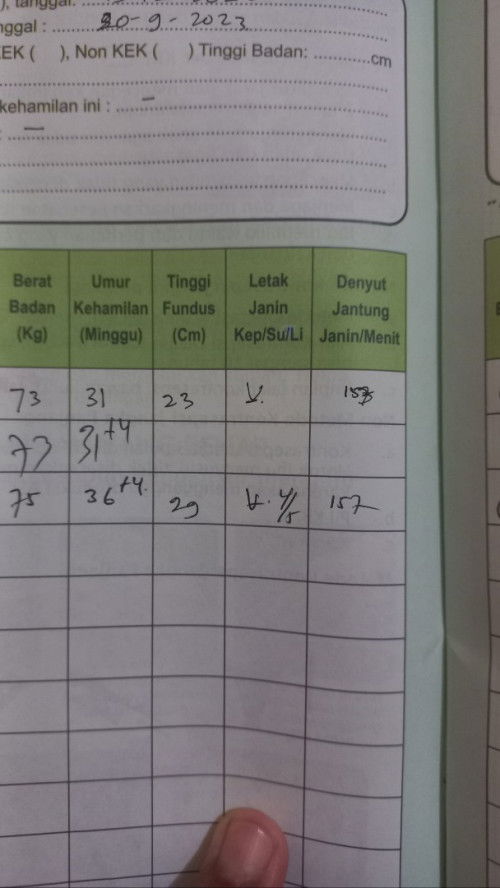 ), tanggal:
nggal : 20-9-2023
EK ( ), Non KEK ( ) Tinggi Badan: cm
kehamilan ini : –
: –
Berat Badan (Kg) Umur Kehamilan (Minggu) Tinggi Fundus (Cm) Letak Janin Kep/Su/Li Denyut Jantung Janin/Menit
73 31 23
73 31+4
75 36+4 29 4/5 157